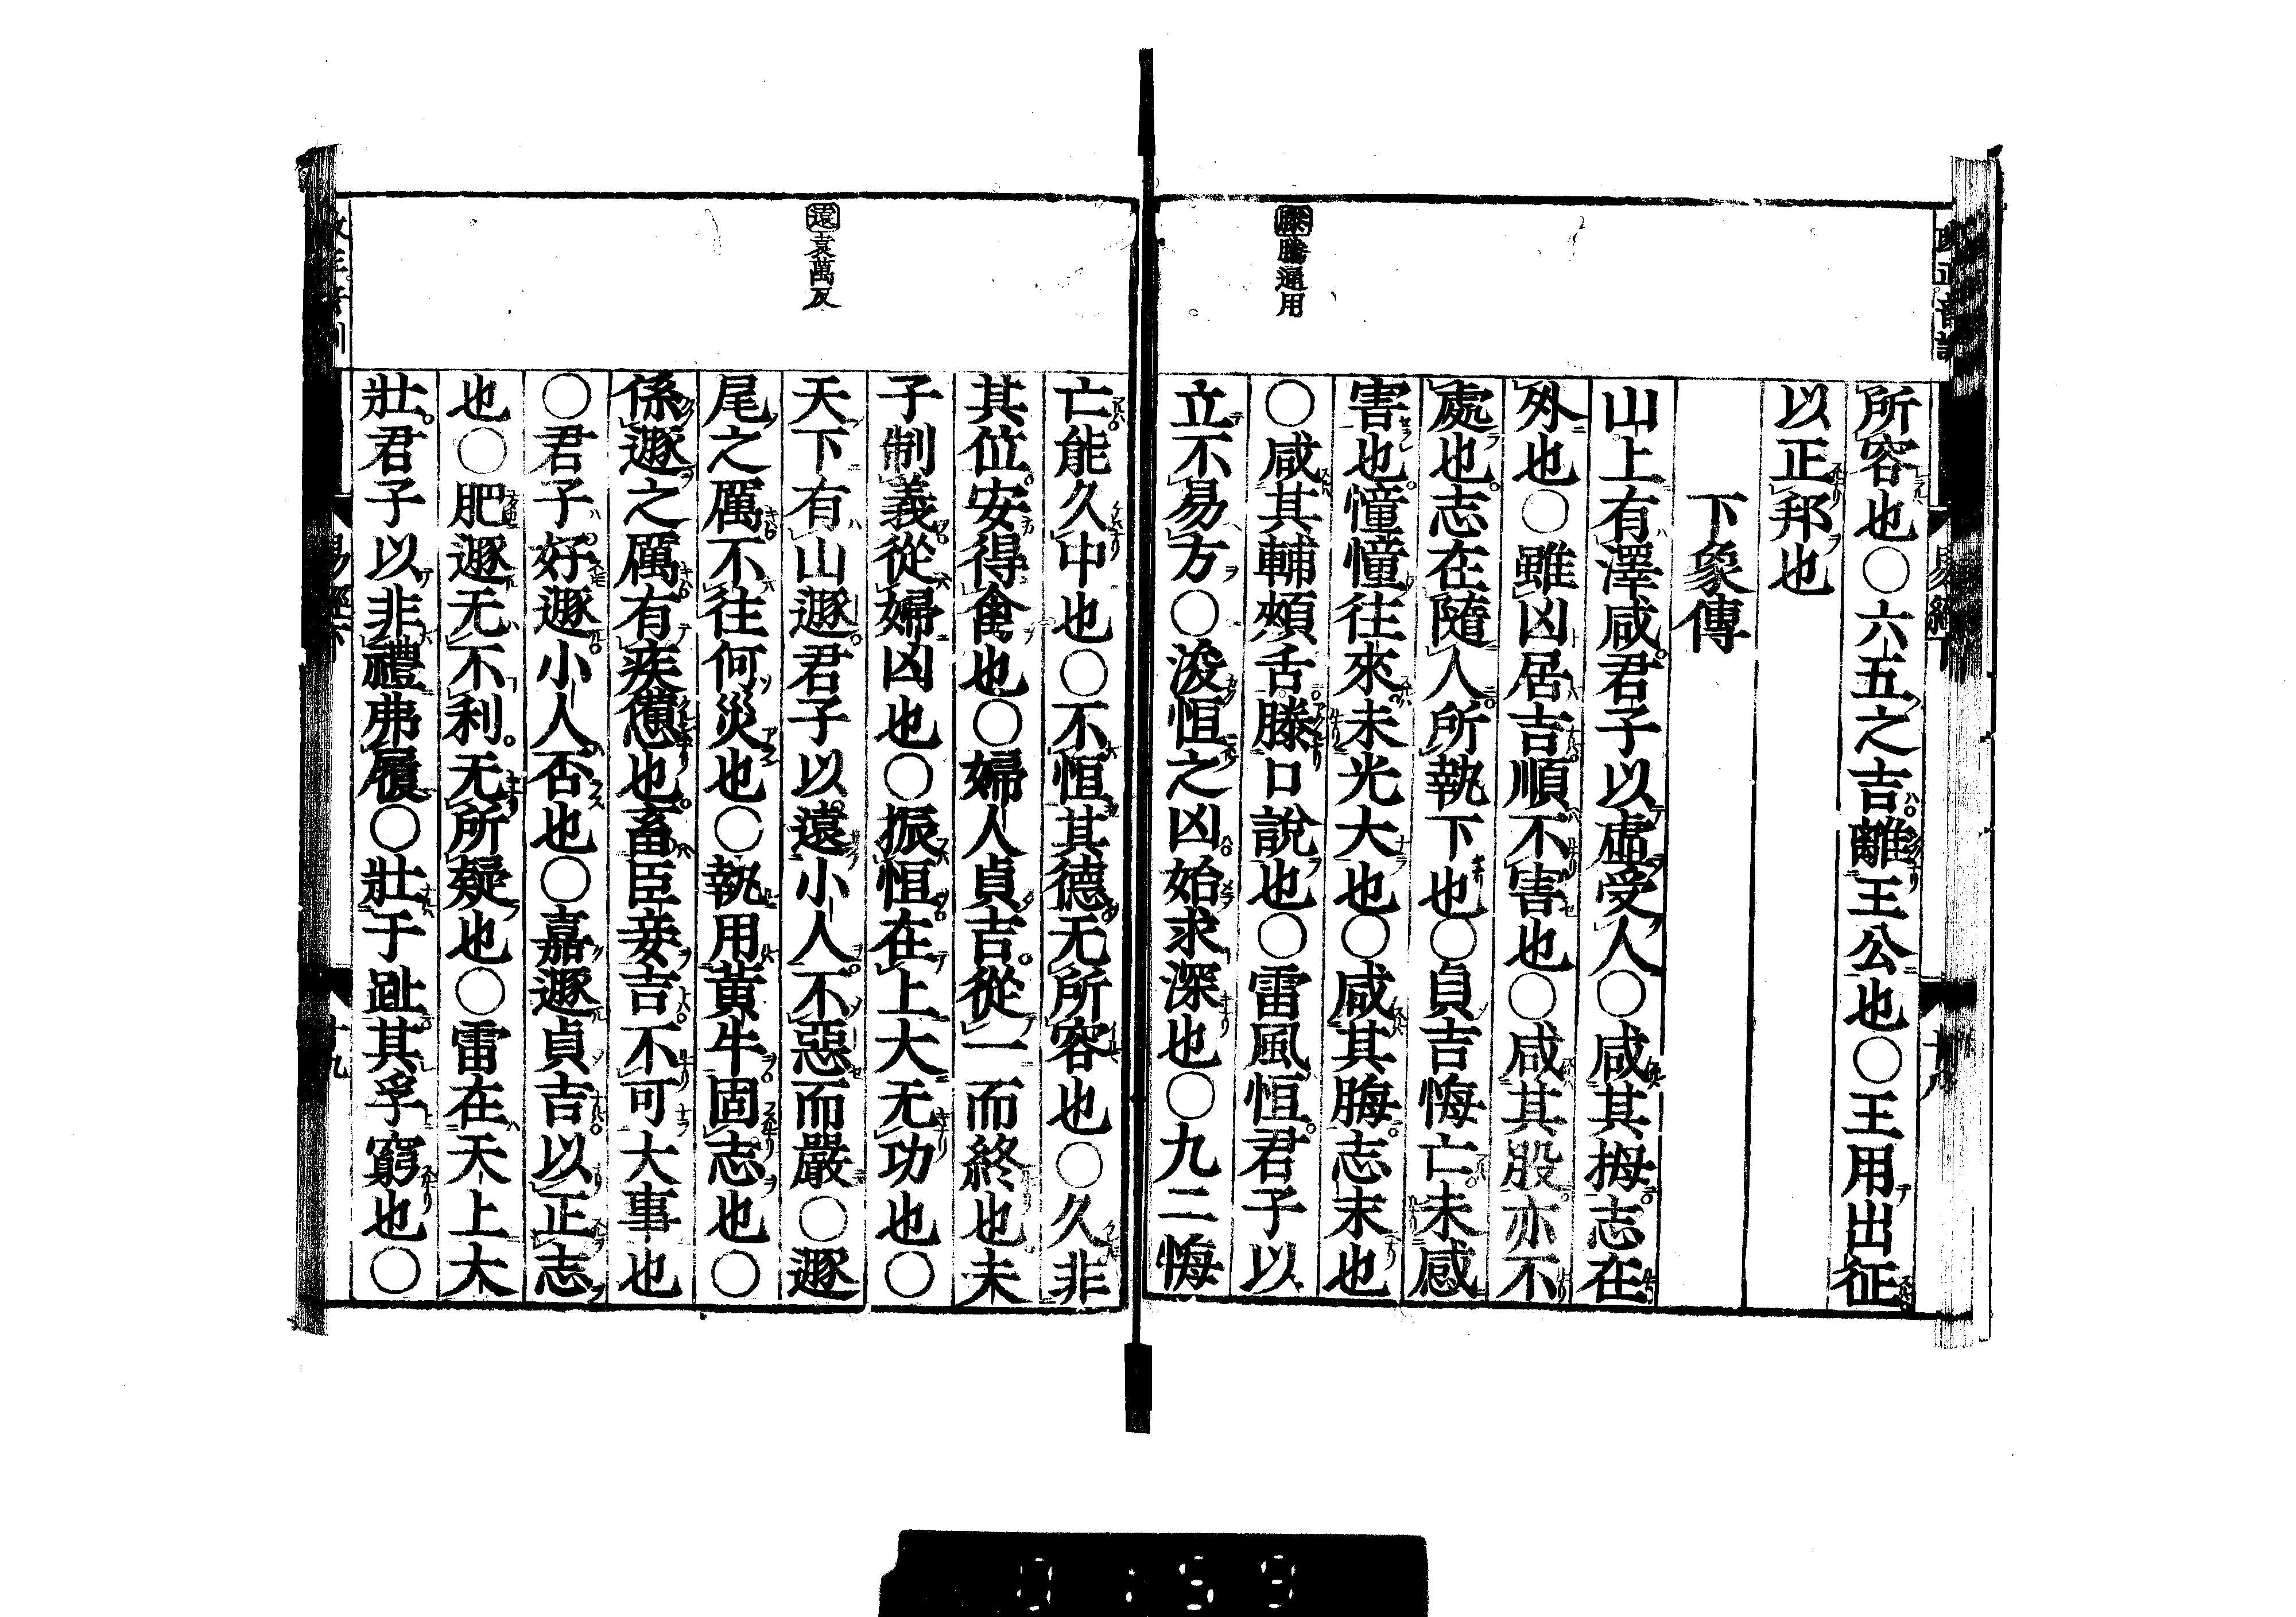 滕騰通用
所容也○六五之吉離王公也○王用出征
以正邦也
下象傳
山上有澤咸君子以虛受人○咸其拇志在
外也○雖凶居吉順不害也○咸其股亦不
處也志在隨人所執下也○貞吉悔亡未感
害也憧憧往來未光大也○咸其脢志末也
○咸其輔頰舌滕口說也○雷風恒君子以
立不易方○浚恒之凶始求深也○九二悔
遠袁萬反
亡能久中也○不恒其德无所容也○久非
其位安得禽也○婦人貞吉從一而終也夫
子制義從婦凶也○振恒在上大无功也○
天下有山遯君子以遠小人不惡而嚴○遯
尾之厲不往何災也○執用黃牛固志也○
係遯之厲有疾憊也畜臣妾吉不可大事也
○君子好遯小人否也○嘉遯貞吉以正志
也○肥遯无不利无所疑也○雷在天上大
壯君子以非禮弗履○壯于趾其孚窮也○